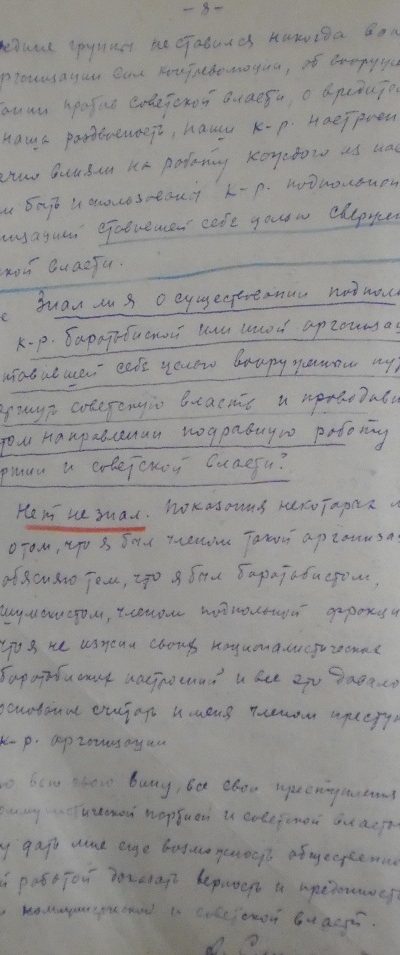 - 8 -
редине группы не ставился никогда воп
организации сил контрреволюции, об вооруже
тании против советской власти, о вредите
наша раздвоеность, наши к-р. настроен
ачно влияли на работу каждого из нас
м быть использованы к-р. подпольной
низацией ставившей себе целью сверже
ской власти.
Знал ли я о существовании подполь
к-р. боротбиской или иной организац
ставившей себе целью вооруженым пут
вергнуть советскую власть и проводивш
этом направлении подрывную работу
ртии и советской власти?
Нет не знал. Показания некоторых л
о том, что я был членом такой организац
обясняю тем, что я был боротбистом,
шумскистом, членом подпольной фракци
что я не изжил своих националистическ
боротбиских настроений и все это давало
основание считать и меня членом преступ
к-р. организации
ю всю свою вину, все свои преступления
оммунистической партией и советской властью
у дать мне еще возможность общественно
й работой доказать верность и преданность
и коммунистической и советской власти.